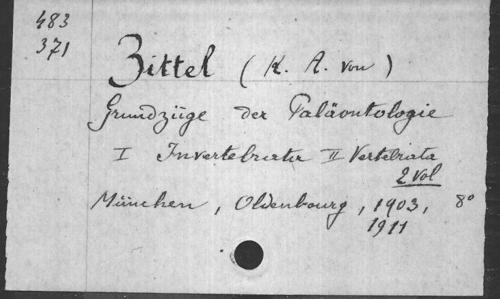 483
371
Zittel (K. A. von)
Grundzüge der Paläontologie
I Invertebrata II Vertebrata
2 vol
München, Oldenbourg, 1903, 8°
1911